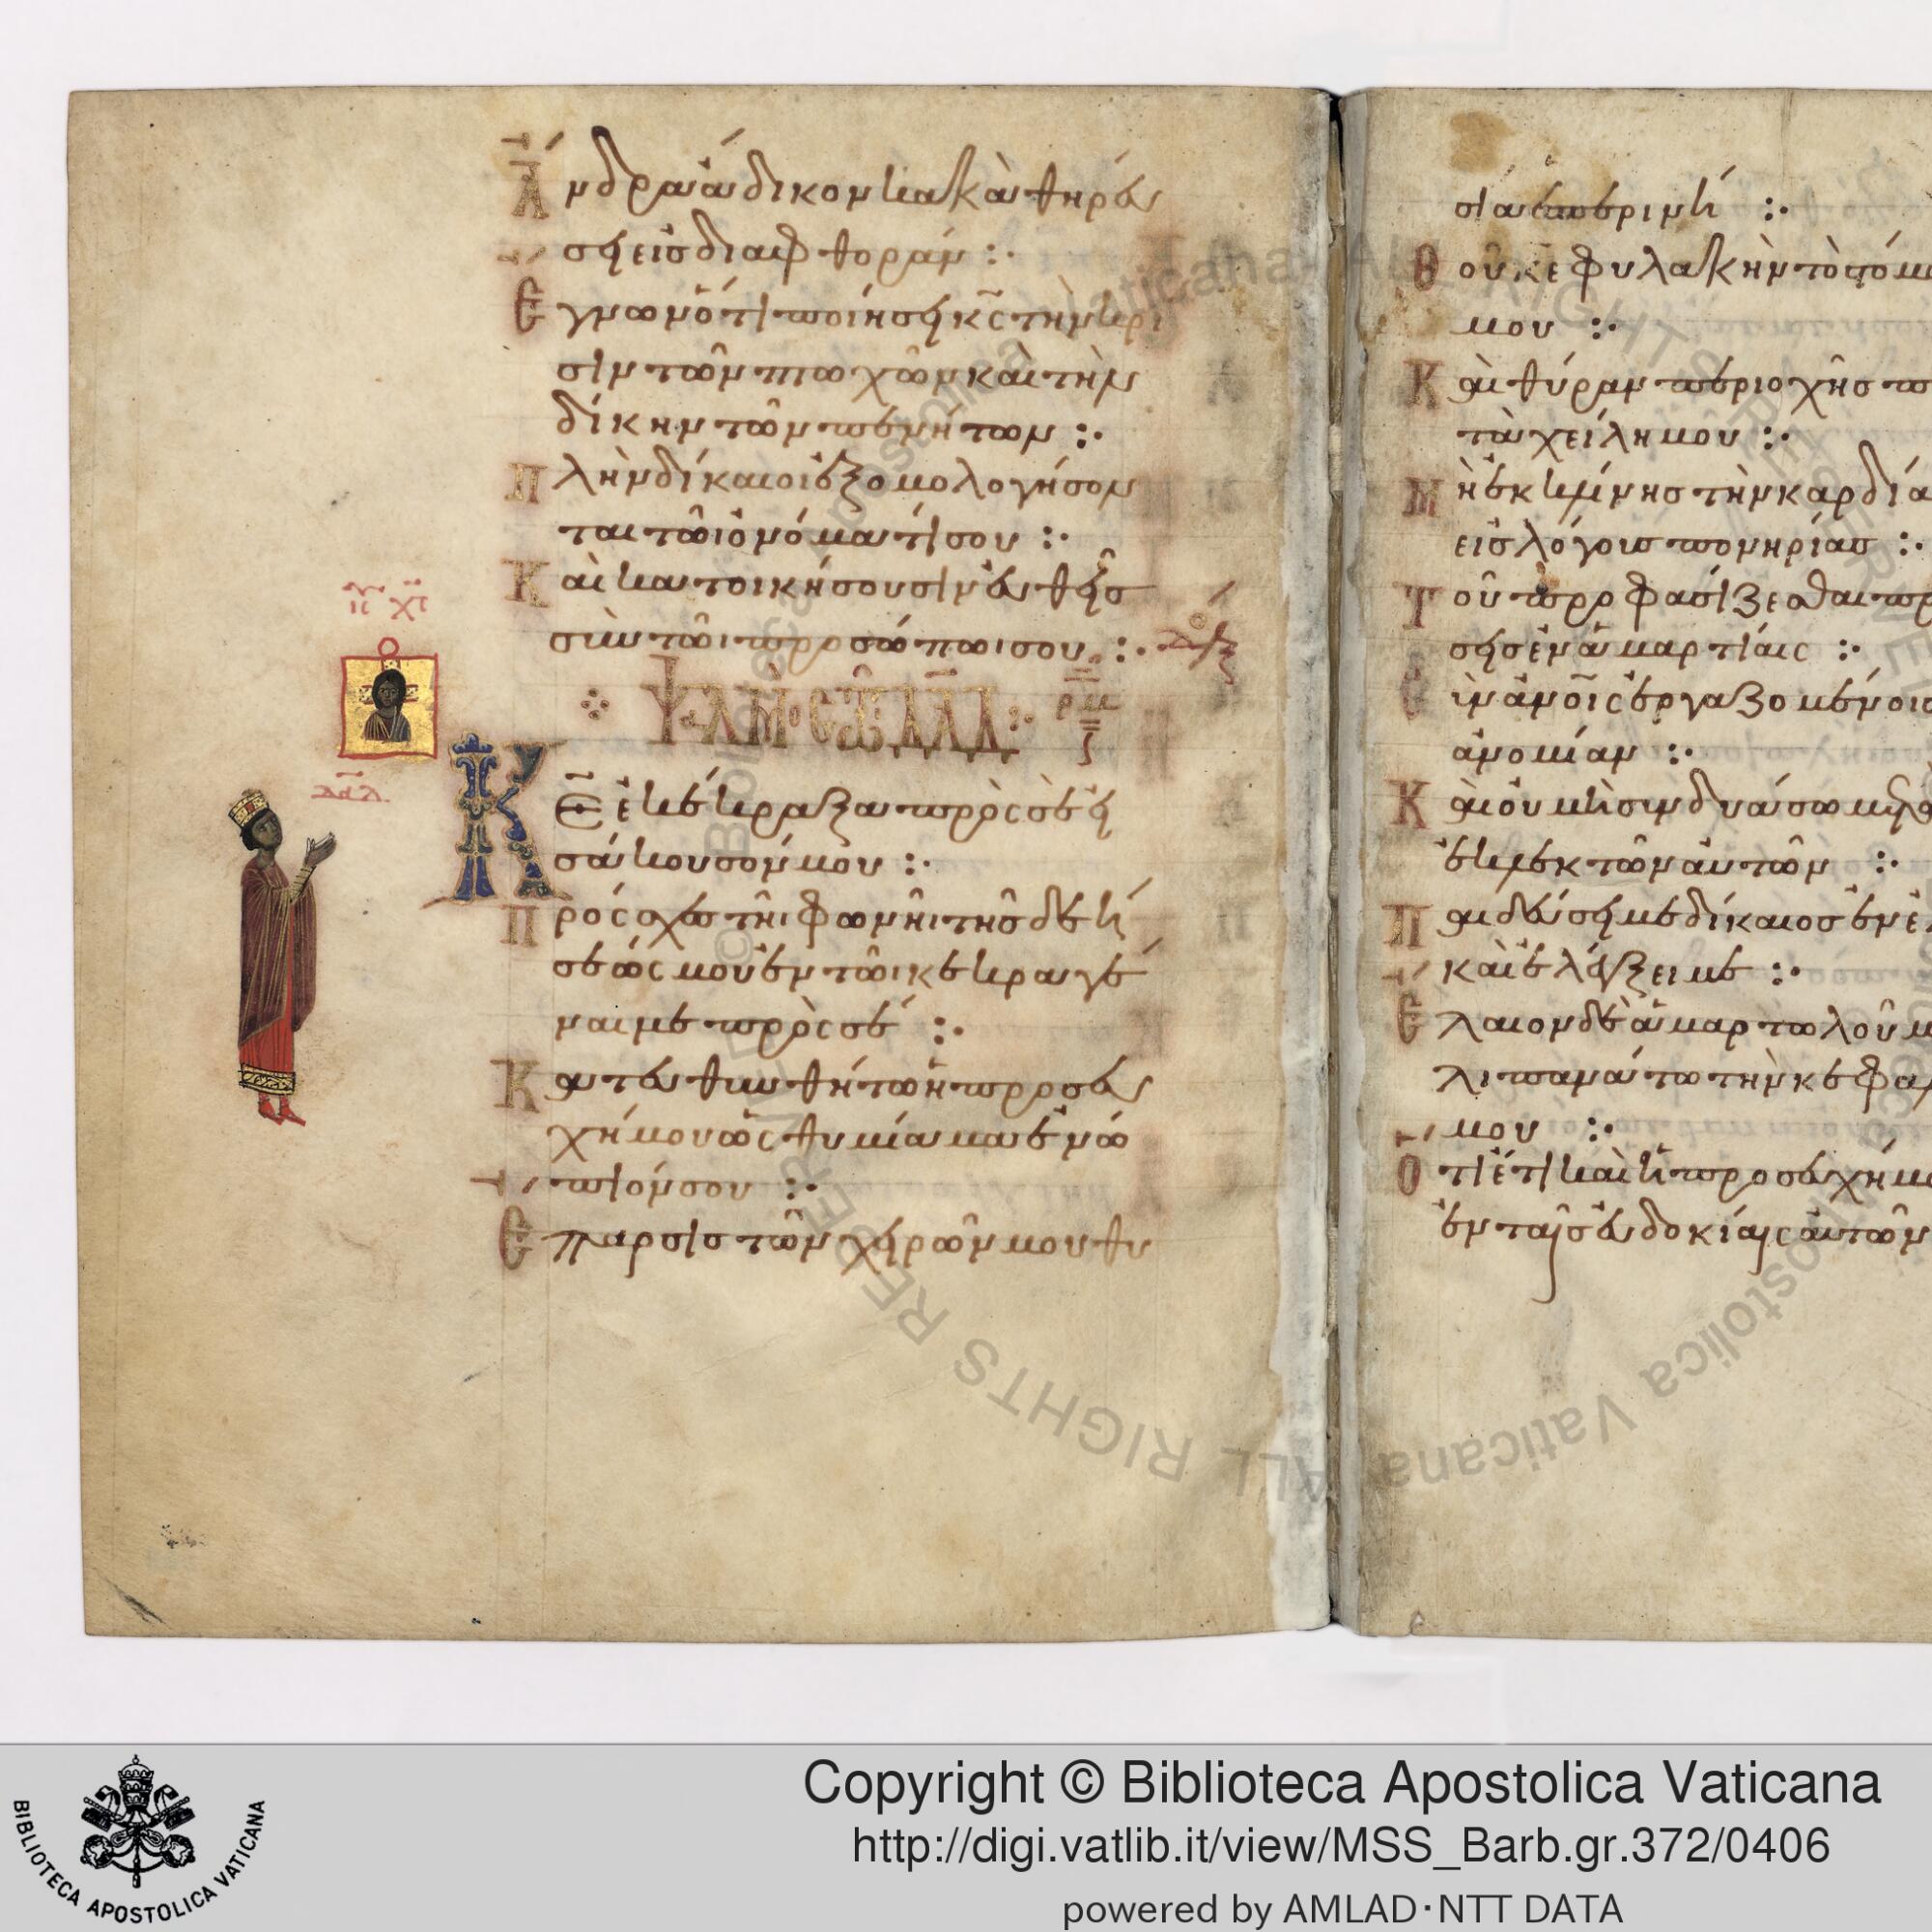 Ἄνδρα ἄδικον κακὰ θηρεύ
σει εἰς διαφθοράν :·
Ἔγνων ὅτι ποιήσει κ̅ς̅ τὴν κρί
σιν τῶν πτωχῶν καὶ τὴν
δίκην τῶν πενήτων :·
Πλὴν δίκαιοι ἐξομολογήσον
ται τῶι ὀνόματί σου :·
Καὶ κατοικήσουσιν εὐθεῖς
σὺν τῶι προσώπωι σου :·
ΨΑΛΜΟΣ ΤΩ ΔΑΔ :· ρμ
Κ̅Ε̅ ἐκέκραξα πρὸς σὲ εἰ
σάκουσόν μου :·
Πρόσχες τῆι φωνῆι τῆς δεή
σεώς μου ἐν τῶι κεκραγέ
ναι με πρὸς σέ :·
Κατευθυνθήτω ἡ προσευ
χή μου ὡς θυμίαμα ἐνώ
πιόν σου :·
Ἔπαρσις τῶν χειρῶν μου θυ
ι̅ς̅ χ̅ς̅
δα̅δ
σία ἑσπερινή :·
Θοῦ κ̅ε̅ φυλακὴν τῶ στόμα
μου :·
Καὶ θύραν περιοχῆς
τὰ χείλη μου :·
Μὴ ἐκκλίνης τὴν καρδία
εἰς λόγους πονηρίας :·
Τοῦ προφασίζεσθαι πρ
σεις ἐν ἁμαρτίαις :·
Σὺν ἀνοῖς ἐργαζομένοις
ἀνομίαν :·
Καὶ οὐ μὴ συνδυάσω με
ἐκλεκτῶν αὐτῶν :·
Παιδεύσει με δίκαιος ἐν ἐ
καὶ ἐλέγξει με :·
Ἔλαιον δὲ ἁμαρτωλοῦ μ
λιπανάτω τὴν κεφα
μου :·
Ὅτι ἔτι καὶ ἡ προσευχή μ
ἐν ταῖς εὐδοκίαις αὐτῶν
BIBLIOTECA APOSTOLICA VATICANA
Copyright © Biblioteca Apostolica Vaticana
http://digi.vatlib.it/view/MSS_Barb.gr.372/0406
powered by AMLAD·NTT DATA